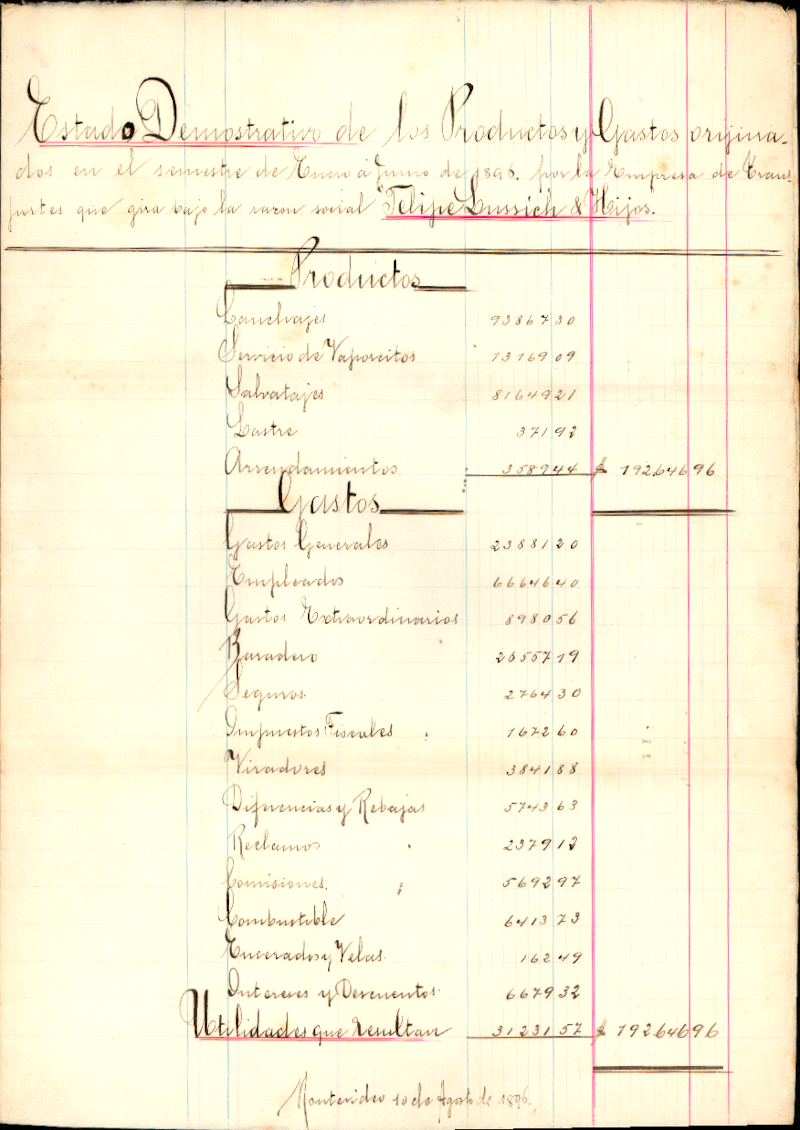 Estado Demostrativo de los Productos y Gastos orijina-
dos en el semestre de Enero á Junio de 1896. por la Empresa de Trans-
portes que gira bajo la razon social Felipe Lussich & Hijos.
Productos
Lanchajes 9386730
Servicio de Vaporcitos 1316909
Salvatajes 8164921
Lastre 37192
Arrendamientos. 358944 $ 19264696
Gastos
Gastos Generales 2388120
Empleados 6664640
Gastos Extraordinarios 898056
Baradero 2655719
Seguros. 276430
Impuestos Fiscales 167260
Viradores 384188
Diferencias y Rebajas 574363
Reclamos 237912
Comisiones. 569297
Combustible 641373
Encerados y Velas. 16249
Intereses y Descuentos. 667932
Utilidades que resultan 3123157 $ 19264696
Montevideo 10 de Agosto de 1896.